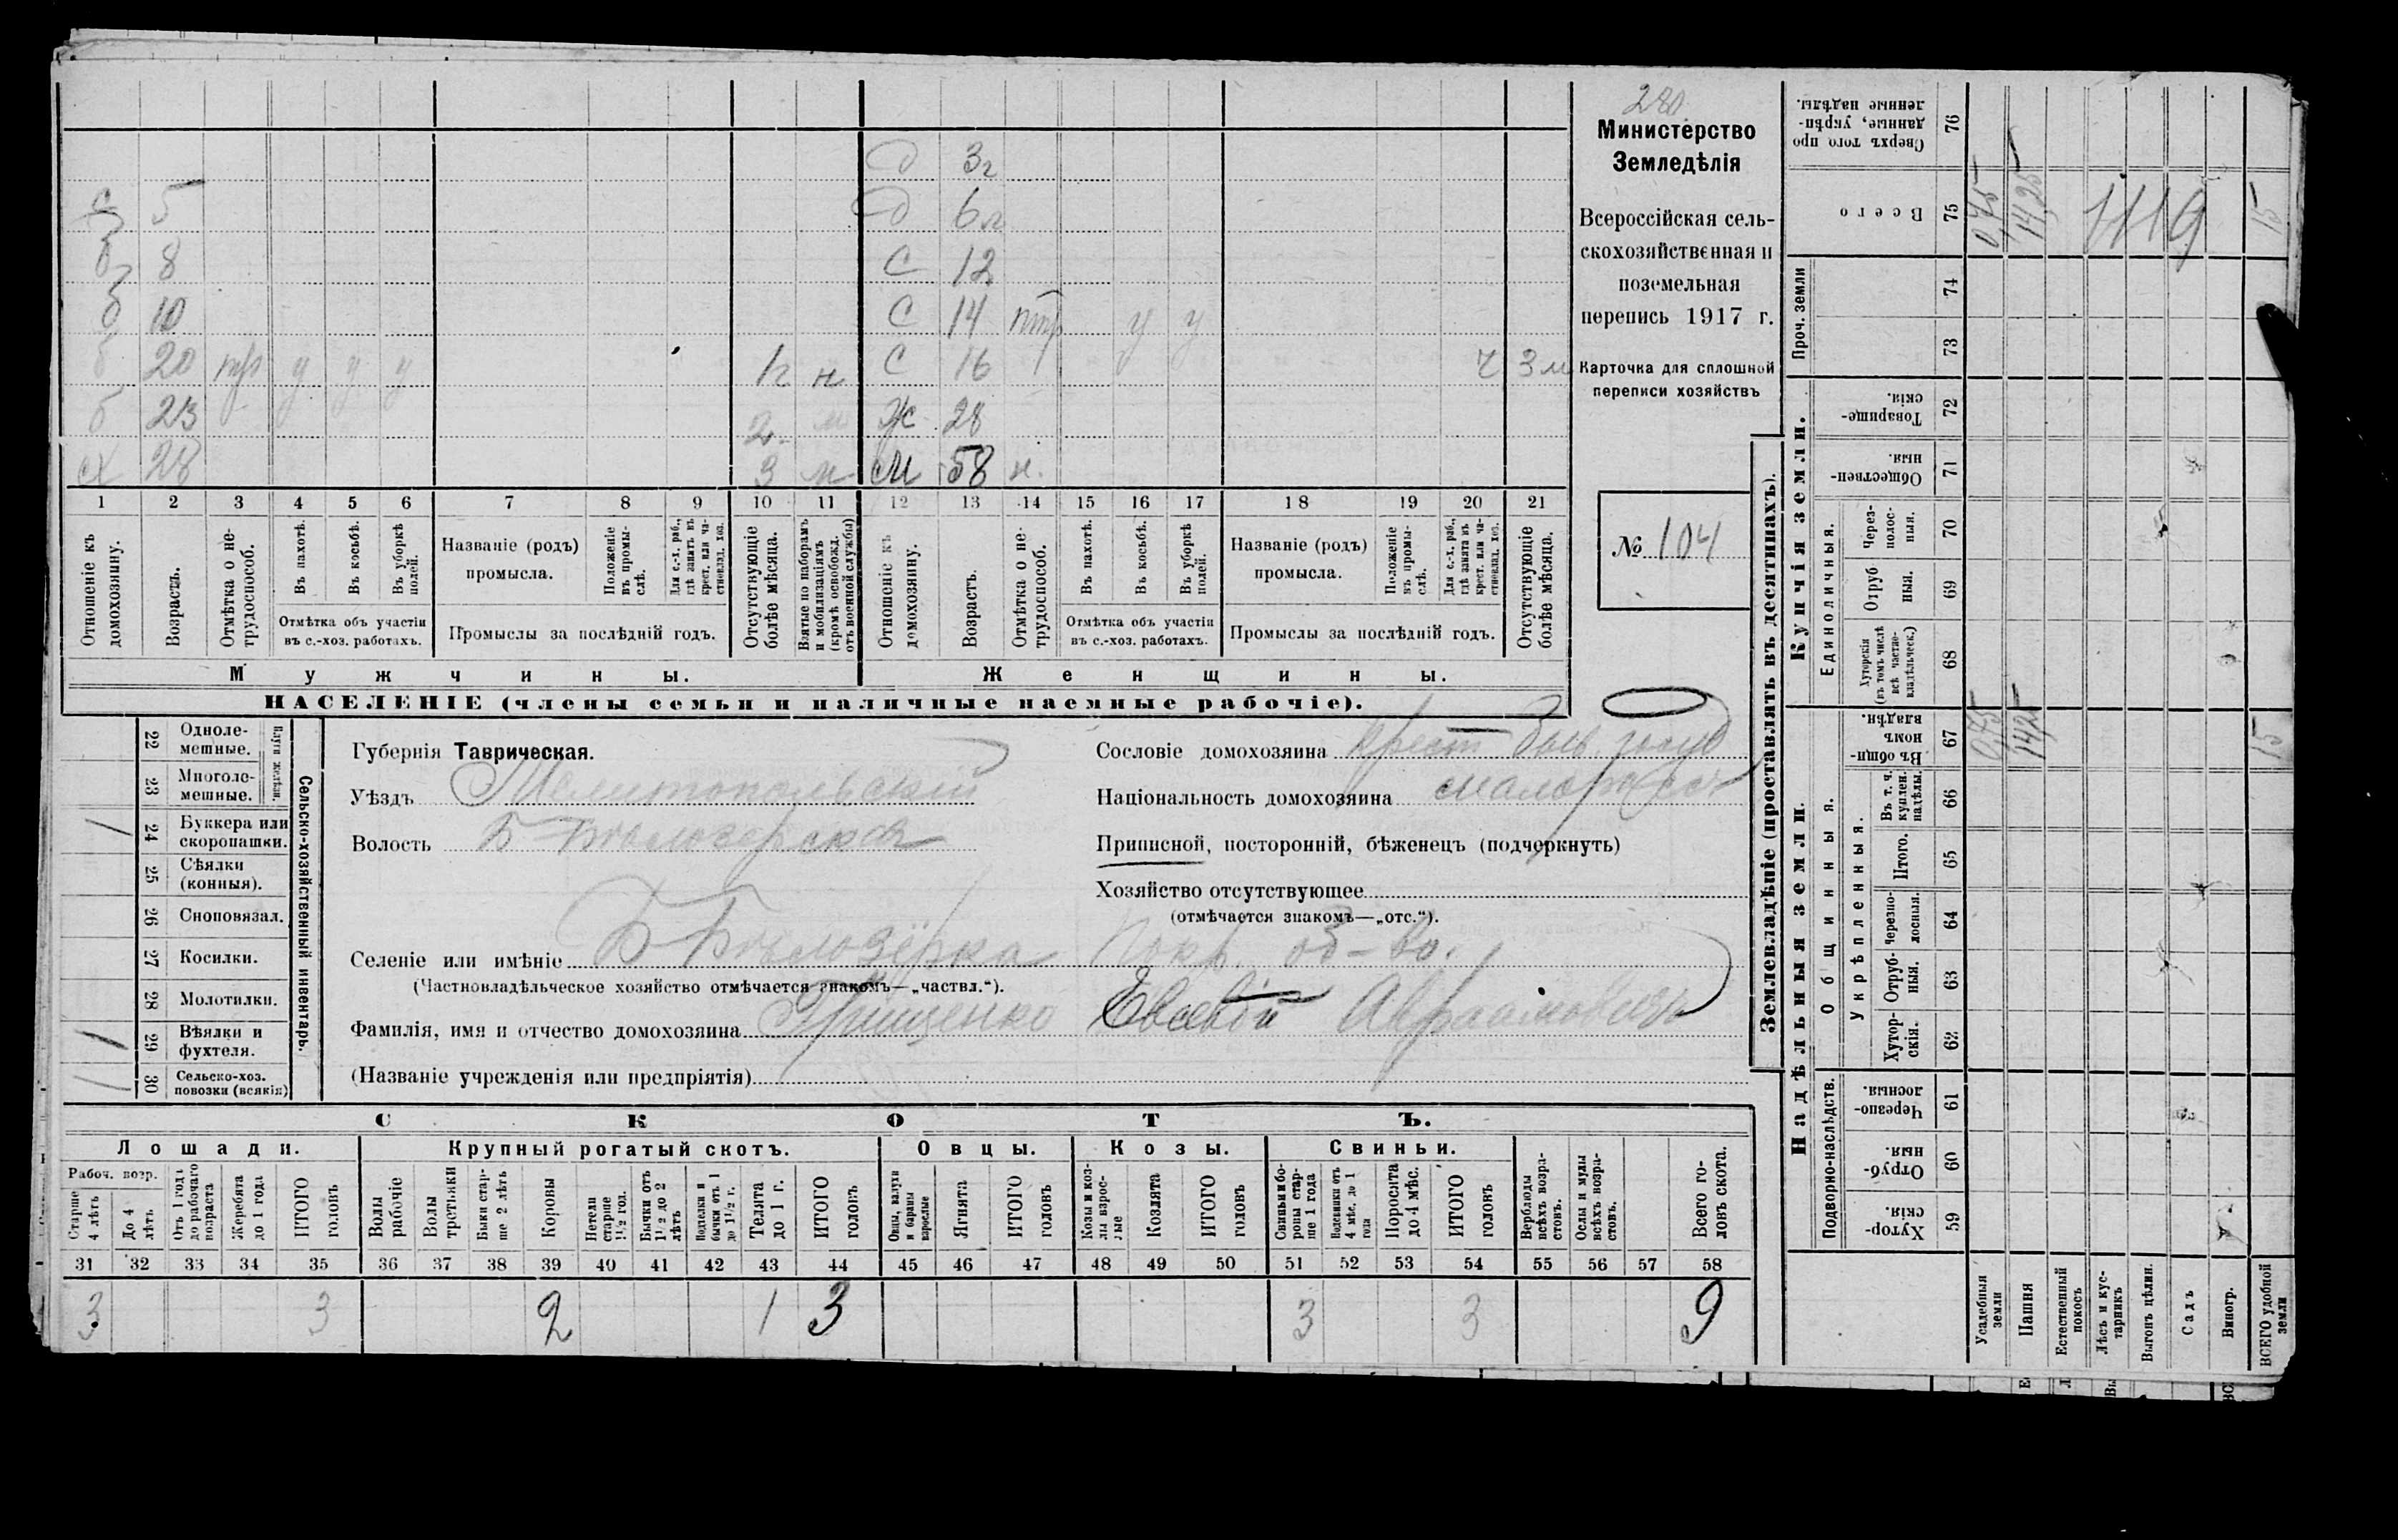 280
Министерство
Земледѣлія
Всероссійская сель-
скохозяйственная и
поземельная
перепись 1917 г.
Карточка для сплошной
переписи хозяйствъ
№ 104
д 3г
с 5 д 6л
б 8 С 12
б 10 С 14 у у
б 20 у у у 1г н С 16 ч 3м
б 23 2 м Ж 28
х 28 3 м М 58 н.
1 2 3 4 5 6 7 8 9 10 11 12 13 14 15 16 17 18 19 20 21
Отношеніе къ домохозяину.
Возрастъ.
Отмѣтка о не-трудоспособ.
Въ пахотѣ.
Въ косьбѣ.
Въ уборкѣ полей.
Отмѣтка объ участіи
въ с.-хоз. работахъ.
Названіе (родъ)
промысла.
Положеніе въ промы-слѣ.
Для с.-х. раб., гдѣ занятъ въ крест. или ча-стновлад. хоз.
Промыслы за послѣдній годъ.
Отсутствующіе болѣе мѣсяца.
Взятые по наборамъ и мобилизаціямъ (кромѣ освобожд. отъ военной службы)
Отношеніе къ домохозяину.
Возрастъ.
Отмѣтка о не-трудоспособ.
Въ пахотѣ.
Въ косьбѣ.
Въ уборкѣ полей.
Отмѣтка объ участіи
въ с.-хоз. работахъ.
Названіе (родъ)
промысла.
Положеніе въ промы-слѣ.
Для с.-х. раб., гдѣ занята въ крест. или ча-стновлад. хоз.
Промыслы за послѣдній годъ.
Отсутствующіе болѣе мѣсяца.
Мужчины. Женщины.
НАСЕЛЕНІЕ (члены семьи и наличные наемные рабочіе).
22 Одноле-мешные.
23 Многоле-мешные.
Плуги желѣзн.
24 Буккера или скоропашки.
25 Сѣялки (конныя).
26 Сноповязал.
27 Косилки.
28 Молотилки.
29 Вѣялки и фухтеля.
30 Сельско-хоз. повозки (всякія)
Сельско-хозяйственный инвентарь.
Губернія Таврическая.
Уѣздъ Мелитопольскій
Волость Б Бѣлозерская
Сословіе домохозяина крест быв. госуд
Національность домохозяина малоросс
Приписной, посторонній, бѣженецъ (подчеркнуть)
Хозяйство отсутствующее
(отмѣчается знакомъ—„отс.“).
Селеніе или имѣніе Б Бѣлозёрка Покр. об-во.
(Частновладѣльческое хозяйство отмѣчается знакомъ—„частвл.“).
Фамилія, имя и отчество домохозяина Грищенко Евсевій Авраамовичъ
(Названіе учрежденія или предпріятія)
СКОТЪ.
Лошади. Крупный рогатый скотъ. Овцы. Козы. Свиньи.
Рабоч. возр.
Старше 4 лѣтъ
До 4 лѣтъ
Отъ 1 года до рабочаго возраста
Жеребята до 1 года
ИТОГО головъ
Волы рабочіе
Волы третьяки
Быки стар-ше 2 лѣтъ
Коровы
Нетели старше 1½ год.
Бычки отъ 1½ до 2 лѣтъ
Подтелки и бычки отъ 1 до 1½ г.
Телята до 1 г.
ИТОГО головъ
Овцы, валухи и бараны взрослые
Ягнята
ИТОГО головъ
Козы и коз-лы взрос-лые
Козлята
ИТОГО головъ
Свиньи и бо-ровы стар-ше 1 года
Подсвинки отъ 4 мѣс. до 1 года
Поросята до 4 мѣс.
ИТОГО головъ
Верблюды всѣхъ возра-стовъ.
Ослы и мулы всѣхъ возра-стовъ.
Всего го-ловъ скота.
31 32 33 34 35 36 37 38 39 40 41 42 43 44 45 46 47 48 49 50 51 52 53 54 55 56 57 58
3 3 2 1 3 3 3 9
Землевладѣніе (проставлять въ десятинахъ).
Надѣльныя земли. Купчія земли. Проч. земли
Подворно-наслѣдств.
Общинныя.
Укрѣпленныя.
Единоличныя.
Хутор-скія. 59
Отруб-ныя. 60
Черезпо-лосныя. 61
Хутор-скія. 62
Отруб-ныя. 63
Черезпо-лосныя. 64
Итого. 65
Въ т. ч. куплен. надѣлы. 66
Въ общи-номъ владѣн. 67
Хуторскія (въ томъ числѣ всѣ частно-владѣльческ.) 68
Отруб ныя. 69
Через-полос-ныя. 70
Обществен-ныя. 71
Товарище-скія. 72
73
74
Всего 75
Сверхъ того про данные, укрѣп-ленные надѣлы. 76
Усадебныя земли 0,75 0,75
Пашня 14,25 14,25
Естественный покосъ
Лѣсъ и кус-тарникъ
Выгонъ цѣлин.
Садъ
Виногр.
ВСЕГО удобной земли 15 15
1119